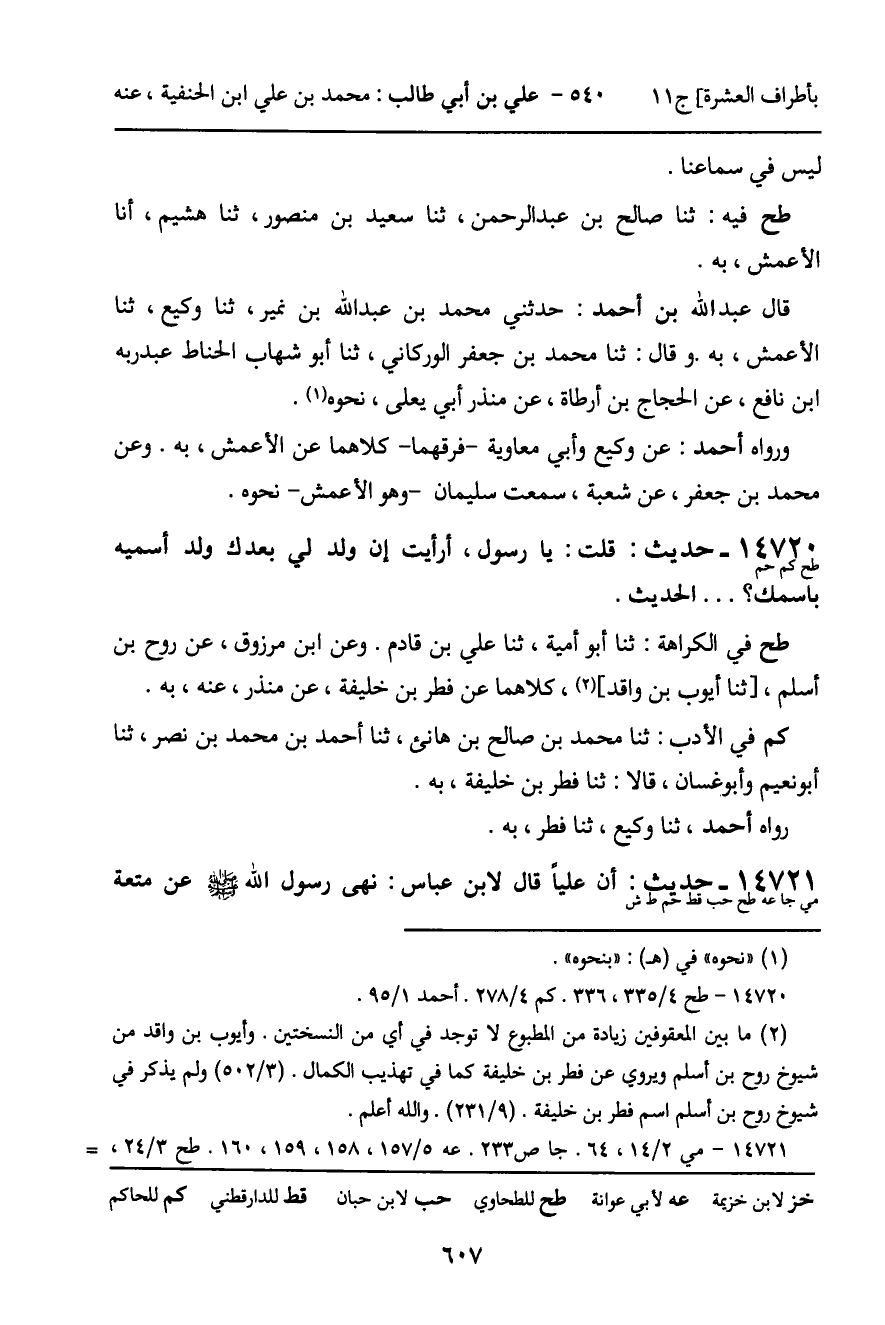 بأطراف العشرة] ج١١ ٥٤٠ - علي بن أبي طالب : محمد بن علي ابن الحنفية ، عنه
ليس في سماعنا .
طح فيه : ثنا صالح بن عبدالرحمن ، ثنا سعيد بن منصور ، ثنا هشيم ، أنا
الأعمش ، به .
قال عبدالله بن أحمد : حدثني محمد بن عبدالله بن نمير ، ثنا وكيع ، ثنا
الأعمش ، به .و قال : ثنا محمد بن جعفر الوركاني ، ثنا أبو شهاب الحناط عبدربه
ابن نافع ، عن الحجاج بن أرطاة ، عن منذر أبي يعلى ، نحوه(١) .
ورواه أحمد : عن وكيع وأبي معاوية -فرقهما- كلاهما عن الأعمش ، به . وعن
محمد بن جعفر ، عن شعبة ، سمعت سليمان -وهو الأعمش- نحوه .
١٤٧٢٠ - حديث : قلت : يا رسول ، أرأيت إن ولد لي بعدك ولد أسميه
طح كم حم
باسمك؟ . . . الحديث .
طح في الكراهة : ثنا أبو أمية ، ثنا علي بن قادم . وعن ابن مرزوق ، عن روح بن
أسلم ، [ثنا أيوب بن واقد](٢) ، كلاهما عن فطر بن خليفة ، عن منذر ، عنه ، به .
كم في الأدب : ثنا محمد بن صالح بن هانئ ، ثنا أحمد بن محمد بن نصر ، ثنا
أبونعيم وأبوغسان ، قالا : ثنا فطر بن خليفة ، به .
رواه أحمد ، ثنا وكيع ، ثنا فطر ، به .
١٤٧٢١ - حديث : أن علياً قال لابن عباس : نهى رسول الله ﷺ عن متعة
مي جا عه طح حب قط حم ط ش
(١) «نحوه» في (هـ) : «بنحوه» .
١٤٧٢٠ - طح ٣٣٥/٤ ، ٣٣٦ . كم ٢٧٨/٤ . أحمد ٩٥/١ .
(٢) ما بين المعقوفين زيادة من المطبوع لا توجد في أي من النسختين . وأيوب بن واقد من
شيوخ روح بن أسلم ويروي عن فطر بن خليفة كما في تهذيب الكمال . (٥٠٢/٣) ولم يذكر في
شيوخ روح بن أسلم اسم فطر بن خليفة . (٢٣١/٩) . والله أعلم .
١٤٧٢١ - مي ١٤/٢ ، ٦٤ . جا ص٢٣٣ . عه ١٥٧/٥ ، ١٥٨ ، ١٥٩ ، ١٦٠ . طح ٢٤/٣ ، =
خز لابن خزيمة عه لأبي عوانة طح للطحاوي حب لابن حبان قط للدارقطني كم للحاكم
٦٠٧